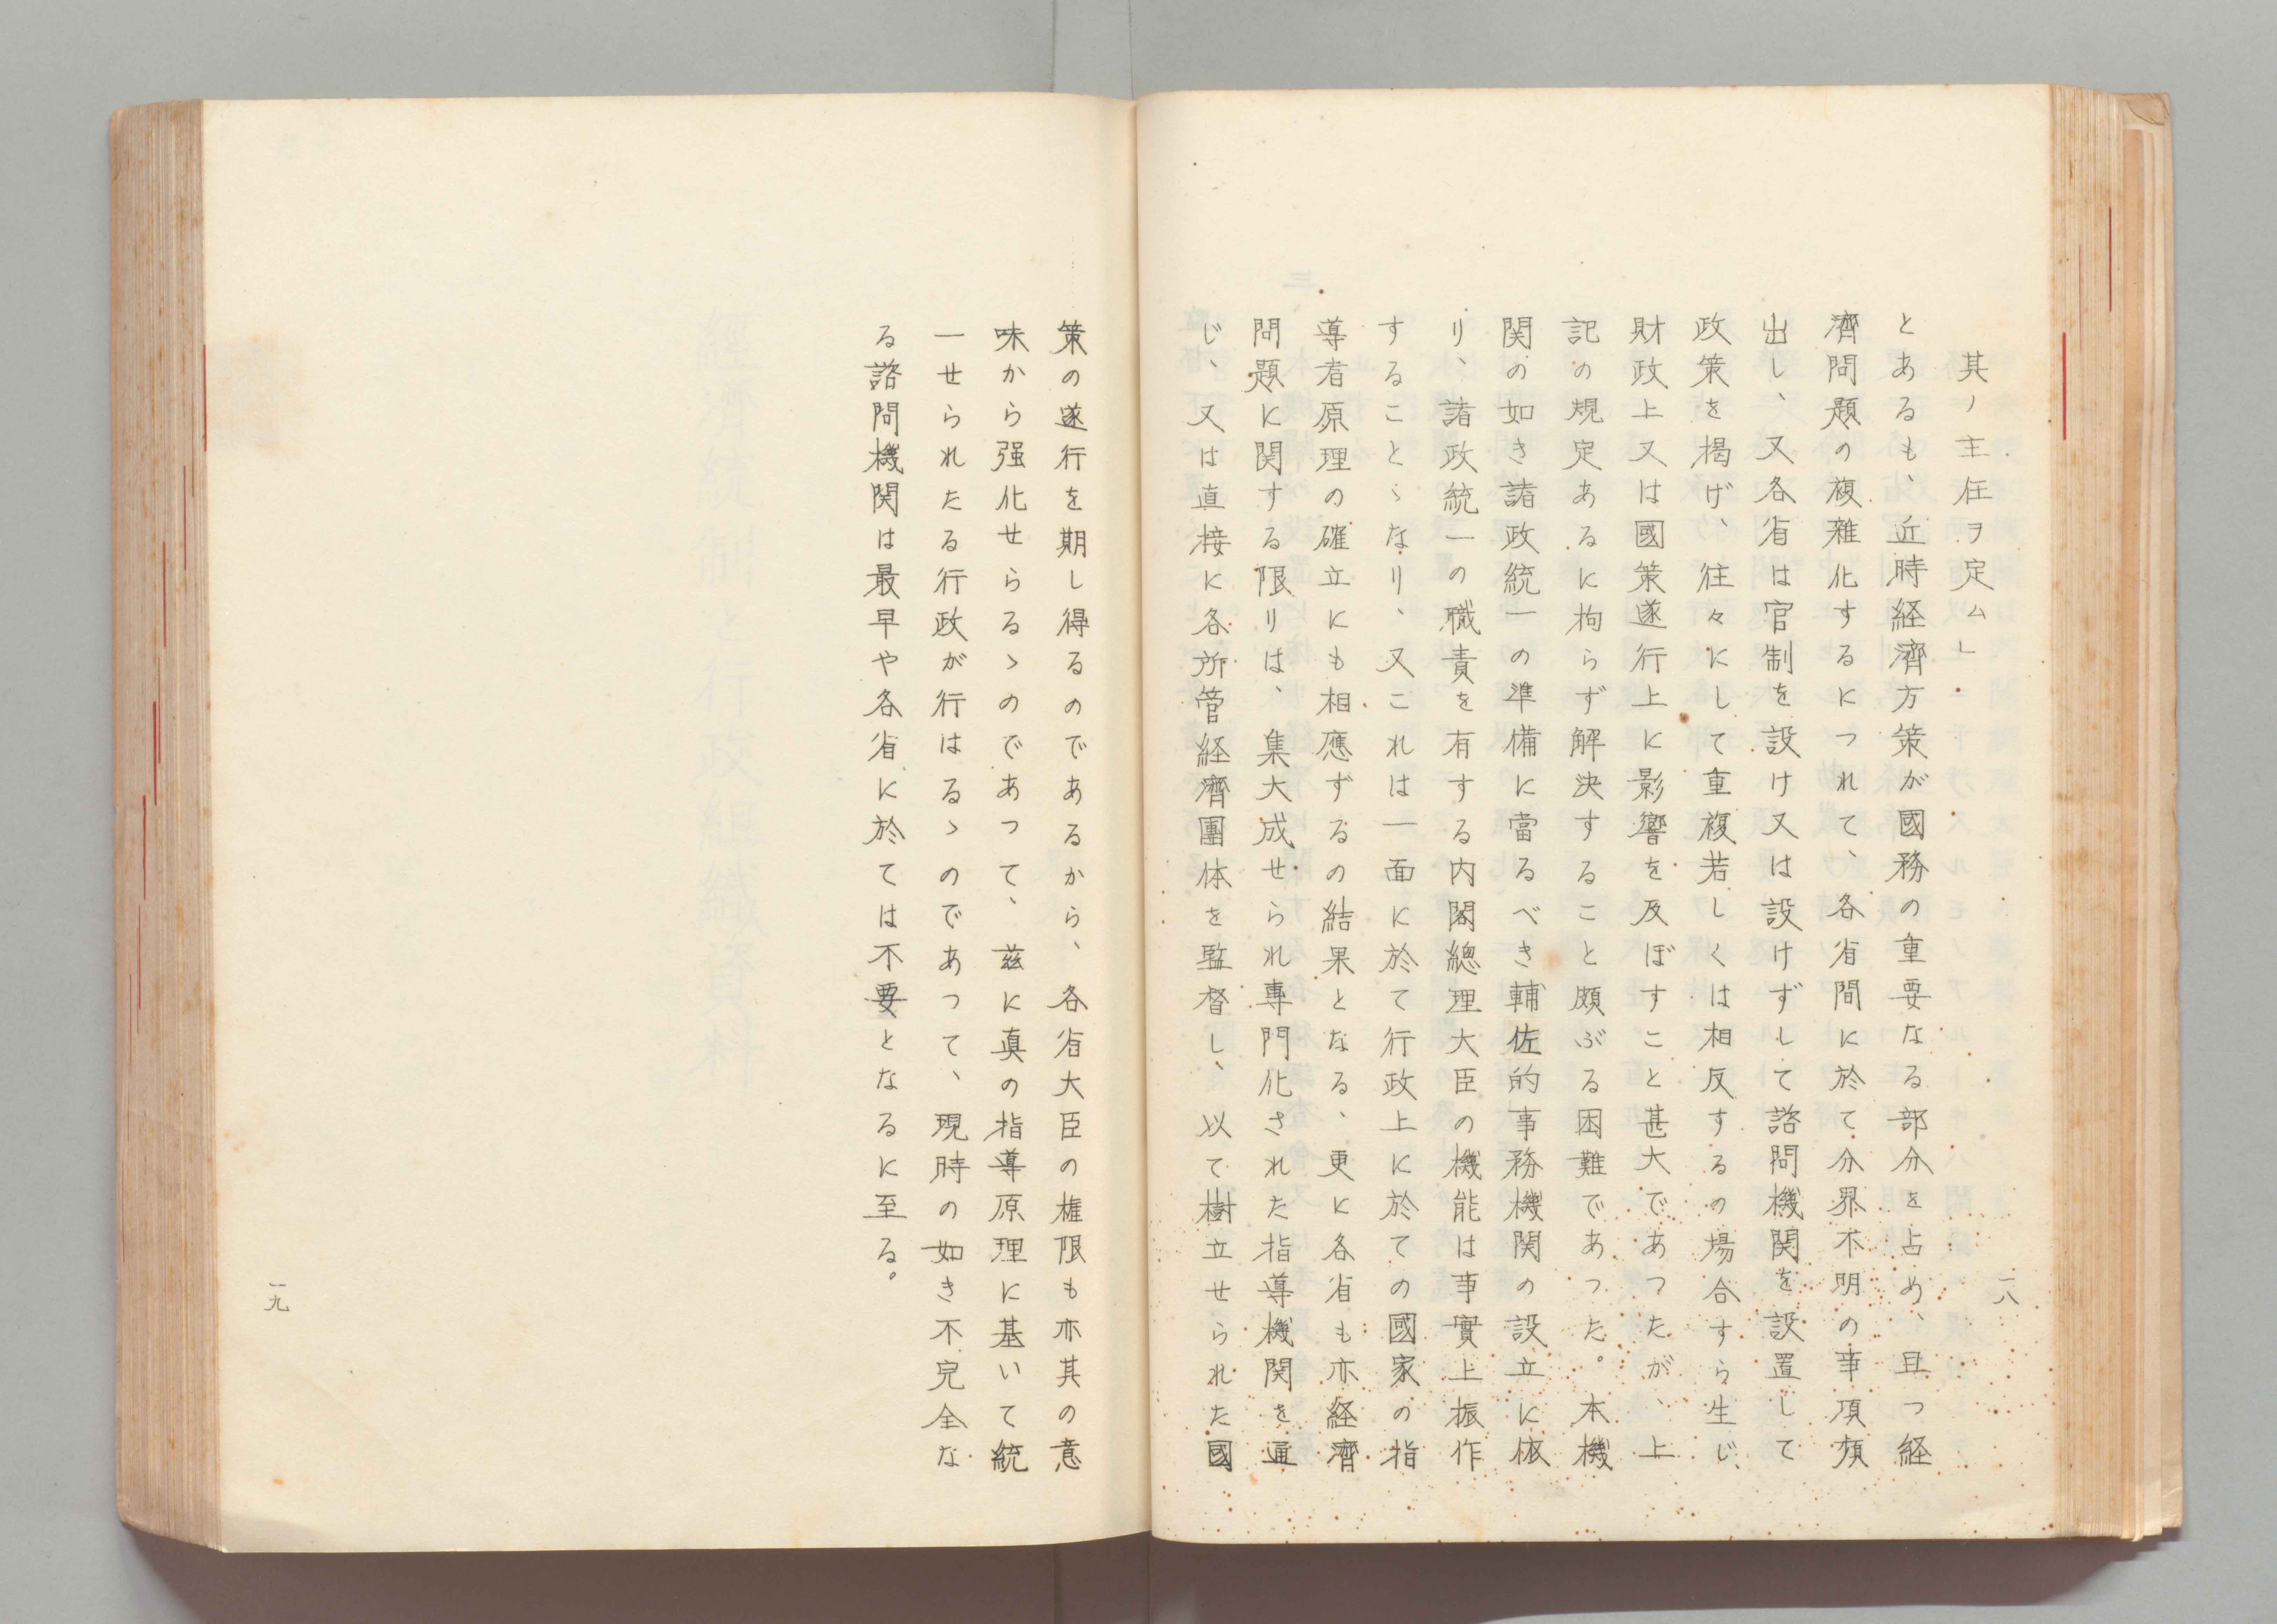 其ノ主任ヲ定ム」
とあるも、近時経濟方策が國務の重要なる部分を占め、且つ経
濟問題の複雜化するにつれて、各省間に於て分界不明の事項頻
出し、又各省は官制を設け又は設けずして諮問機関を設置して
政策を掲げ、往々にして重複若しくは相反するの場合すら生じ、
財政上又は國策遂行上に影響を反ぼすこと甚大であつたが、上
記の規定あるに拘らず解決すること頗ぶる困難であつた。本機
関の如き諸政統一の準備に當るべき輔佐的事務機関の設立に依
り、諸政統一の職責を有する内閣總理大臣の機能は事實上振作
することゝなり、又これは一面に於て行政上に於ての國家の指
導者原理の確立にも相應ずるの結果となる、更に各省も亦経濟
問題に関する限りは、集大成せられ專門化された指導機関を通
じ、又は直接に各所管経濟團体を監督し、以て樹立せられた國
一八
策の遂行を期し得るのであるから、各省大臣の権限も亦其の意
味から强化せらるゝのであつて、茲に真の指導原理に基いて統
一せられたる行政が行はるゝのであつて、現時の如き不完全な
る諮問機関は最早や各省に於ては不要となるに至る。
一九
經濟統制と行政組織資料